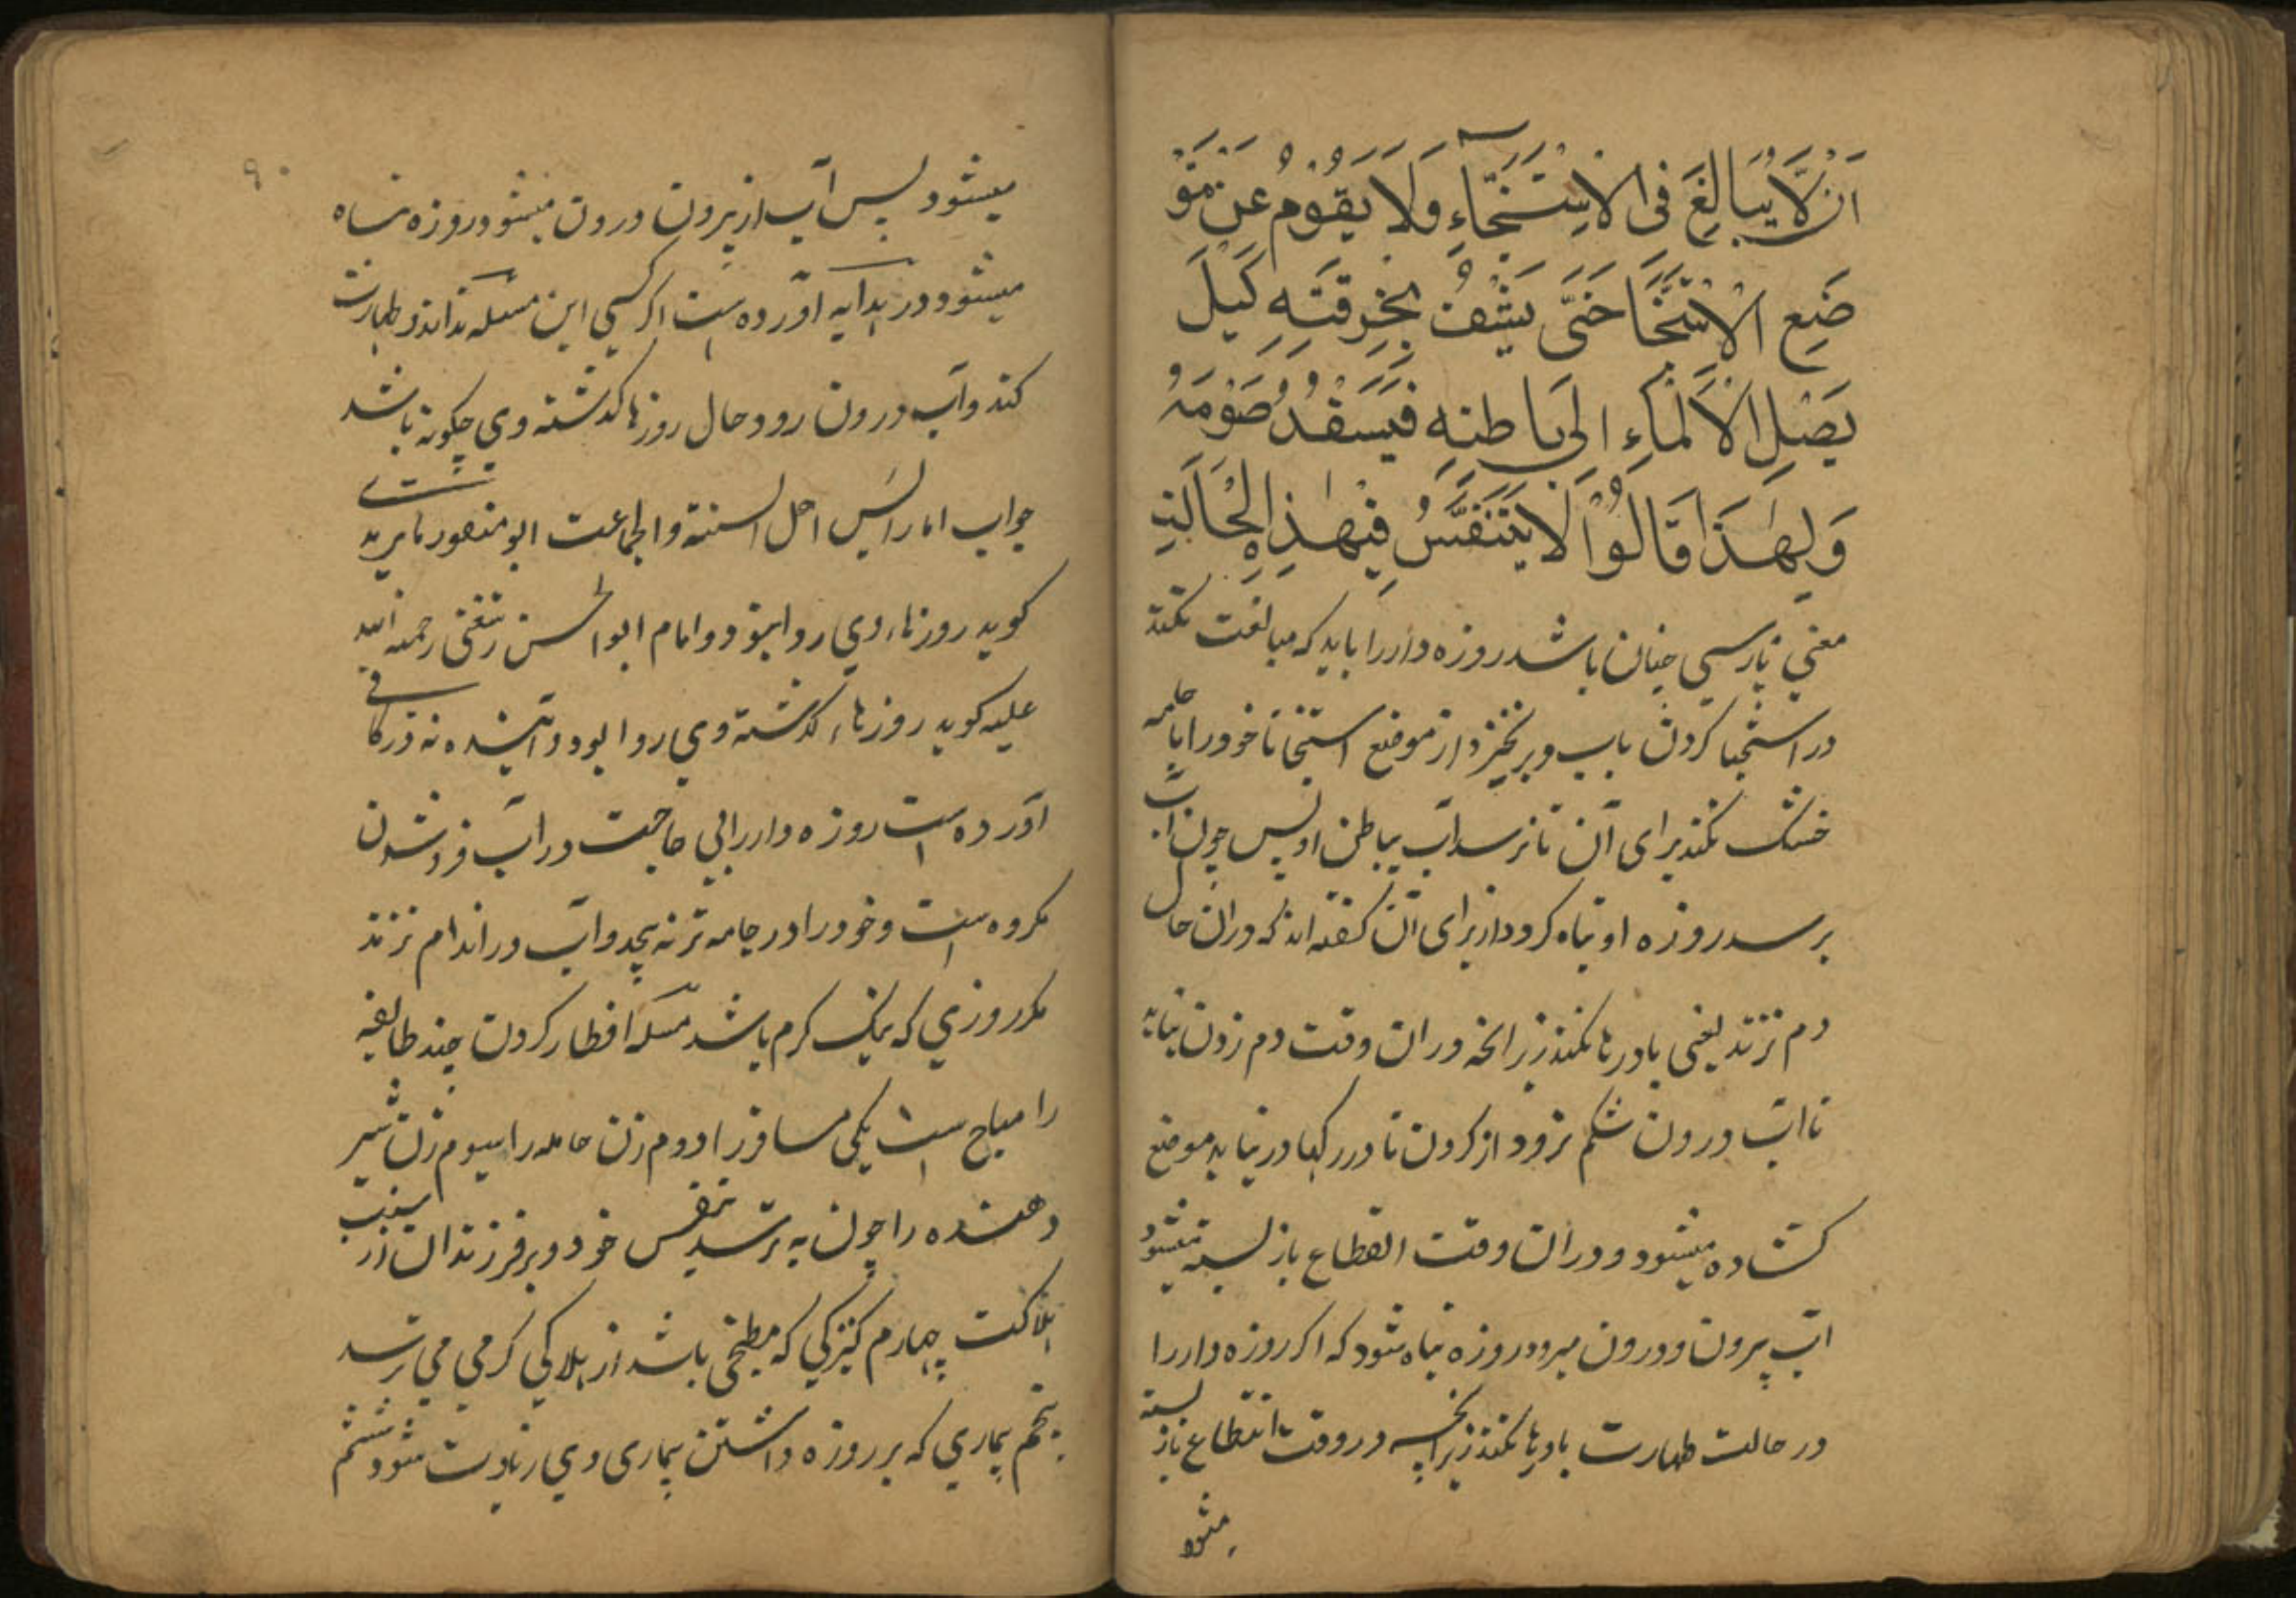 اَنْ لَّا يُبَالِغَ فِى الْاِسْتِنْجَآءِ وَلَا يَقُوْمُ عَنْ مَّوْ
ضَعِ الْاِسْتِنْجَا حَتّٰى يَنْشُفُ بِخِرْقَتِهٖ كَيْلَ
يَصِلِ الْاَلْمَاءِ اِلٰى بَاطِنِهٖ فَيَسْفَدُ صَوْمَهُ
وَلِهٰذَا قَالُوْا لَا يَتَنَفَّسُ فِيْ هٰذِهِ الْحَالَتِ
معنی پارسی چنان باشد روزه دار را باید که مبالغت نکند
در استنجا کردن باب و برنخیزد از موضع استنجا تا خود را با جامه
خشک نکند برای آن تا نرسد آب بباطن او پس چون آب
برسد روزه او تباه کردد از برای آن کفته اند که در ان حال
دم نزند یعنی باد رها نکند زیرانچه در ان وقت دم زدن نباید
تا اب درون شکم نرود از کردن تا در رکها در نیاید موضع
کشاده میشود و در ان وقت انقطاع باز بسته میشود
اب بیرون و درون میرود روزه تباه شود که اکر روزه دار را
در حالت طهارت باد رها نکند زیرانچه در وقت انقطاع باز بسته
میشود
۹۰
میشود پس آب از بیرون درون میشود روزه تباه
میشود در بدایه آورده است اکر کسی این مسئله نداند و طهارت
کند و آب درون رود حال روزها کذشته وی چکونه باشد
جواب اما رائس اهل السنة و الجماعت ابو منصور ماتریدی
کوید روزهاء وی روا نبود و امام ابو الحسن رستغفنی رحمه الله
علیه کوید روزهاء کذشته وی روا بود و آینده نه در کافی
آورده است روزه دار را بی حاجت در آب فرو شدن
مکروه است و خود را در جامه تر نه پیچد و آب در اندام نزند
مکر روزی که نیک کرم باشد مسئله افطار کردن چند طائفه
را مباح است یکی مسافر را دوم زن حامله را سیوم زن شیر
دهنده را چون به ترسد بنفس خود و بر فرزندان از سبب
هلاکت چهارم کنیزکی که مطبخی باشد از هلاکی کرمی می ترسد
پنجم بیماری که بر روزه داشتن بیماری وی زیادت شود ششم